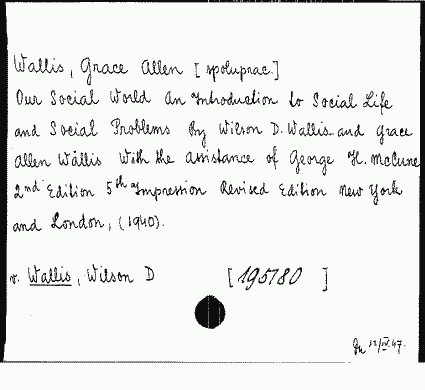 Wallis, Grace Allen [spoluprac.]
Our Social World An Introduction to Social Life
and Social Problems By Wilson D. Wallis and Grace
Allen Wallis With the assistance of George H. McCune
2nd Edition 5th Impression Revised Edition New York
and London, (1940).
v. Wallis, Wilson D [195780]
12/IV.47.